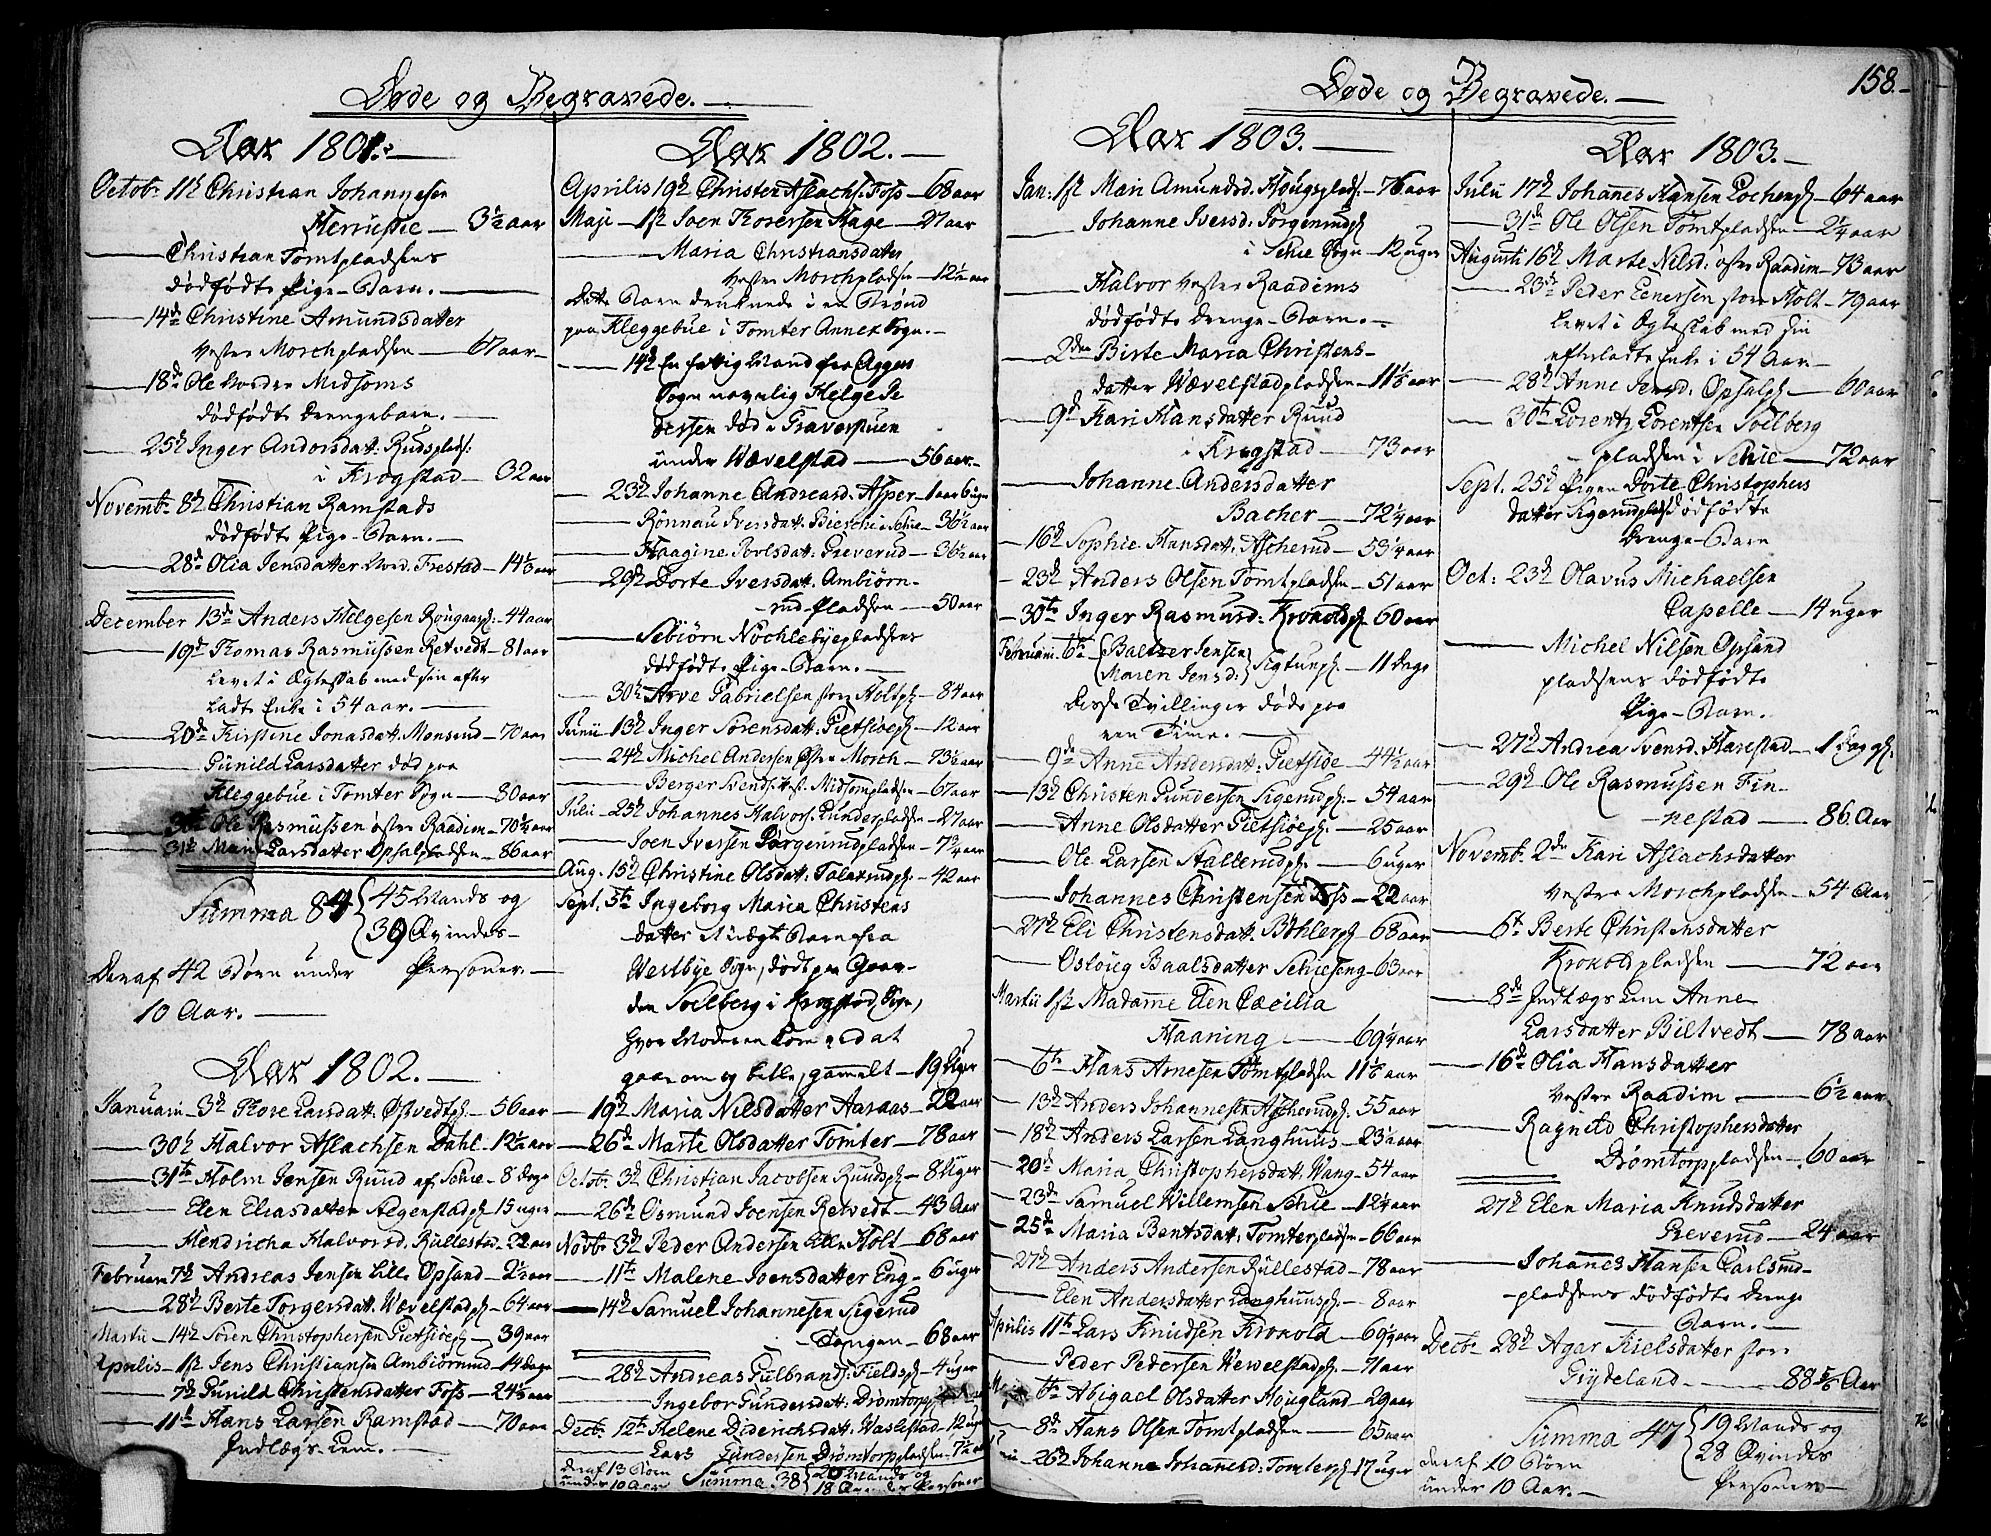 Døde og Begravede.
Aar 1801.
Octobr 11t Christian Johannesen
Herrustie 3½ aar
Christian Tomtpladsens
dødfødte Pige-Barn.
14de Christine Amundsdatter
Vestre Morchpladsen 67 aar
18de Ole Nordre Midsoms
dødfødte Drengebarn.
25de Inger Andorsdatt: Rudsplads:
i Krogstad 32 aar
Novembr. 8de Christian Ramstads
dødfødte Pige-Barn.
28de Olia Jensdatter Nord. Frestad
December 13de Anders Helgesen 44 aar
19de Thomas Rasmussen Retvedt 81 aar
Levet i Ægteskab med sin efter
ladte Enke i 54 aar.
20de Kirstine Jonasdatt. Monsrud 70 aar
Gunild Larsdatter død paa
Kleggebue i Tomter Sogn 80 aar
30te Ole Rasmussen østre Raadim 70¼ aar
31te Mari Larsdatter Opsalpladsen 86 aar
Summa 84 { 45 Mands og
39 Qvindes-
Deraf 42 Børn under Personer.
10 Aar.
Aar 1802.
Januarii 3de Thore Larsdatt. Østvedtpl. 56 aar
30te Halvor Aslachsen Dahl 12½ aar
31te Holm Jensen Ruud af Schie 8 dage
Elen Eliasdatter Aegerstadpl. 15 uger
Hendricha Halvorsd. Rullestad 22 aar
Februarii 7de Andreas Jensen Lille Opsand 2½ aar
28de Berte Torgersdatt. Wævelstadpl. 64 aar
Martii 14de Søren Christophersen Gietsiøepl. 39 aar
Aprilis 1ste Jens Christiansen Ambiørnrud 14 dage
7de Gunild Christensdatter Foss 24½ aar
11te Hans Larsen Ramstad 70 aar
Indlægs Lem.
Aar 1802.
Aprilis 19de Christen Aslachs. Foss 68 aar
Maji 1ste Joen Thoresen Hage 27 aar
Maria Christiansdatter
Vestre Morchpladsen 12½ aar
Dette Barn druknede i en Brønd
paa Kleggebue i Tomter Annex Sogn.
14de En fattig Mand fra Agger
Sogn navnlig Helge Pe
dersen død i Graverstuen
under Wævelstad 56 aar.
23de Johanne Andreasd. Asper 1 aar 6 uger
Rønnau Iversdatt. Bierche i Schie 36½ aar
Haagine Povelsdatt. Greverud 36½ aar
29de Dorte Iversdatt. Ambiørn-
rud-Pladsen 50 aar
Sebiørn Nochlebyepladsens
dødfødte Pige-Barn.
30te Arve Gabrielsen store Holtpl. 84 aar
Junii 13de Inger Sørensdatt. Gietsiøepl. 12 aar
24de Michel Andersen Østre Morch 73½ aar
Berger Svends. Vest. Midsompladsen 67 aar
Julii 25de Johannes Halvors. Lunderpladsen 27 aar
Joen Iversen Børgerrudpladsen 7¾ aar
Aug. 15de Christine Olsdatt. Talaerudpl. 42 aar
Sept. 5te Ingeborg Maria Christens
datter et uægte Barn fra
Westbye Sogn, død paa Gaar-
den Soelberg i Krogstad Sogn,
hvor Moderen kom ad at
gaae om og betle, gammelt 19 Uger
19de Maria Nilsdatter Aaraas 22 aar
26de Marte Olsdatter Tomter 78 aar
Octobr. 3de Christian Jacobsen Ruudspl. 8 Uger
26de Osmund Joensen Retvedt 43 Aar
Novbr. 3de Peder Andersen Lille Holt 68 aar
11te Malene Svensdatter Eng 6 uger
14de Samuel Johannesen Sigerud
Tangen 68 aar
28de Andreas Gulbrands. Fieldspl. 4 uger
Ingebor Gundersdatt. Drømtorp
Decbr. 12te Helene Diderichsdatt. Waslestad 12 uger
Lars Gundersen Drømtorpladsen 7½ aar
deraf 13 Børn Summa 38 { 20 Mands og
under 10 Aar 18 Qvindes Personer
Døde og Begravede.
158.
Aar 1803.
Jan: 1ste Mari Amundsd. Hougspladsen 76 aar
Johanne Iversd: Børgerrudpl
i Schie Sogn 12 uger
Halvor Vestre Raadems
dødfødte Drenge-Barn.
2den Birte Maria Christens-
datter Wævelstadpladsen 11½ aar
9de Kari Hansdatter Ruud
i Krogstad 73 aar
Johanne Andersdatter
Bacher 72¼ aar
16de Sophie Hansdatt. Ascherud 53¼ aar
23de Anders Olsen Tomtpladsen 51 aar
30te Inger Rasmusd: Krokoldpl. 60 aar
Februarii 6te { Baltzer Jensen
Maren Jensd: } Sigtunpl. 11 dage
Disse Tvillinger døde paa
een Time.
9de Anne Andersdatt. Gietsiøe 44½ aar
13de Christen Gundersen Sigerudpl. 54 aar
Anne Olsdatter Gietsiøepl. 25 aar
Ole Larsen Stallerudpl. 6 uger
Johannes Christensen Foss 22 aar
27de Eli Christensdatt. Bøhlerpl. 68 aar
Osloug Baalsdatter Schieseng 63 aar
Martii 1ste Madamme Elen Cæcilia
Haaning 69¼ aar
6te Hans Arnesen Tomtpladsen 11½ aar
13de Anders Johannesen Ascherudpl. 55 aar
18de Anders Larsen Langhuus 23½ aar
20de Maria Christophersdatt. Wang 54 aar
23de Samuel Willemsen Schie 12¼ aar
25de Maria Bentsdatt. Tomterpladsen 66 aar
27de Anders Andersen Rullestad 78 aar
Elen Andersdatter Langhuuspl. 8 aar
Aprilis 11te Lars Knudsen Krokold 69¼ aar
Peder Pedersen Wewelstadpl. 71 aar
6te Abigael Olsdatter Hougland 29 aar
8de Hans Olsen Tomtpladsen 65 aar
26de Johanne Johannesd: Tomterpl. 17 uger
Aar 1803.
Julii 17de Johannes Hansen Lochenspl. 64 aar
31te Ole Olsen Tomtpladsen 2¼ aar
Augusti 16de Marte Nilsd: østre Raadim 73 aar
23de Peder Eenersen store Holt 79 aar
Levet i Ægteskab med sin
efterladte Enke i 54 Aar.
28de Anne Jensd. Opsalpl. 60 aar
30te Lorentz Lorentsen Soelberg
pladsen i Schie 72 aar
Sept. 25de Pigen Dorte Christophers
datter Sigerudpladsen dødfødte
Drenge-Barn
Oct: 23de Olavus Michaelsen
Capelle 14 uger
Michel Nilsen Opsand
pladsens dødfødte
Pige-Barn.
27de Andrea Svensd. Harestad 1 Dag gl.
29de Ole Rasmussen Fin-
nestad 86 Aar
Novemb. 2den Kari Aslachsdatter
Vestre Morchpladsen 54 Aar
6te Berte Christensdatter
Krokoldpladsen 72 aar
8de Indlægs Lem Anne
Larsdatter Biltvedt 78 aar
16de Olia Hansdatter
Vestre Raadim 6½ aar
Ragnild Christophersdatter
Drømtorppladsen 60 aar
27de Elen Maria Knudsdatter
Greverud 24 aar
Johannes Hansen Carlsrud-
pladsens dødfødte Drenge
Barn.
Decbr 28de Agar Kielsdatter store
Grydeland 88⅚ Aar
Summa 47 { 19 Mands og
deraf 10 Børn 28 Qvindes
under 10 Aar. Personer